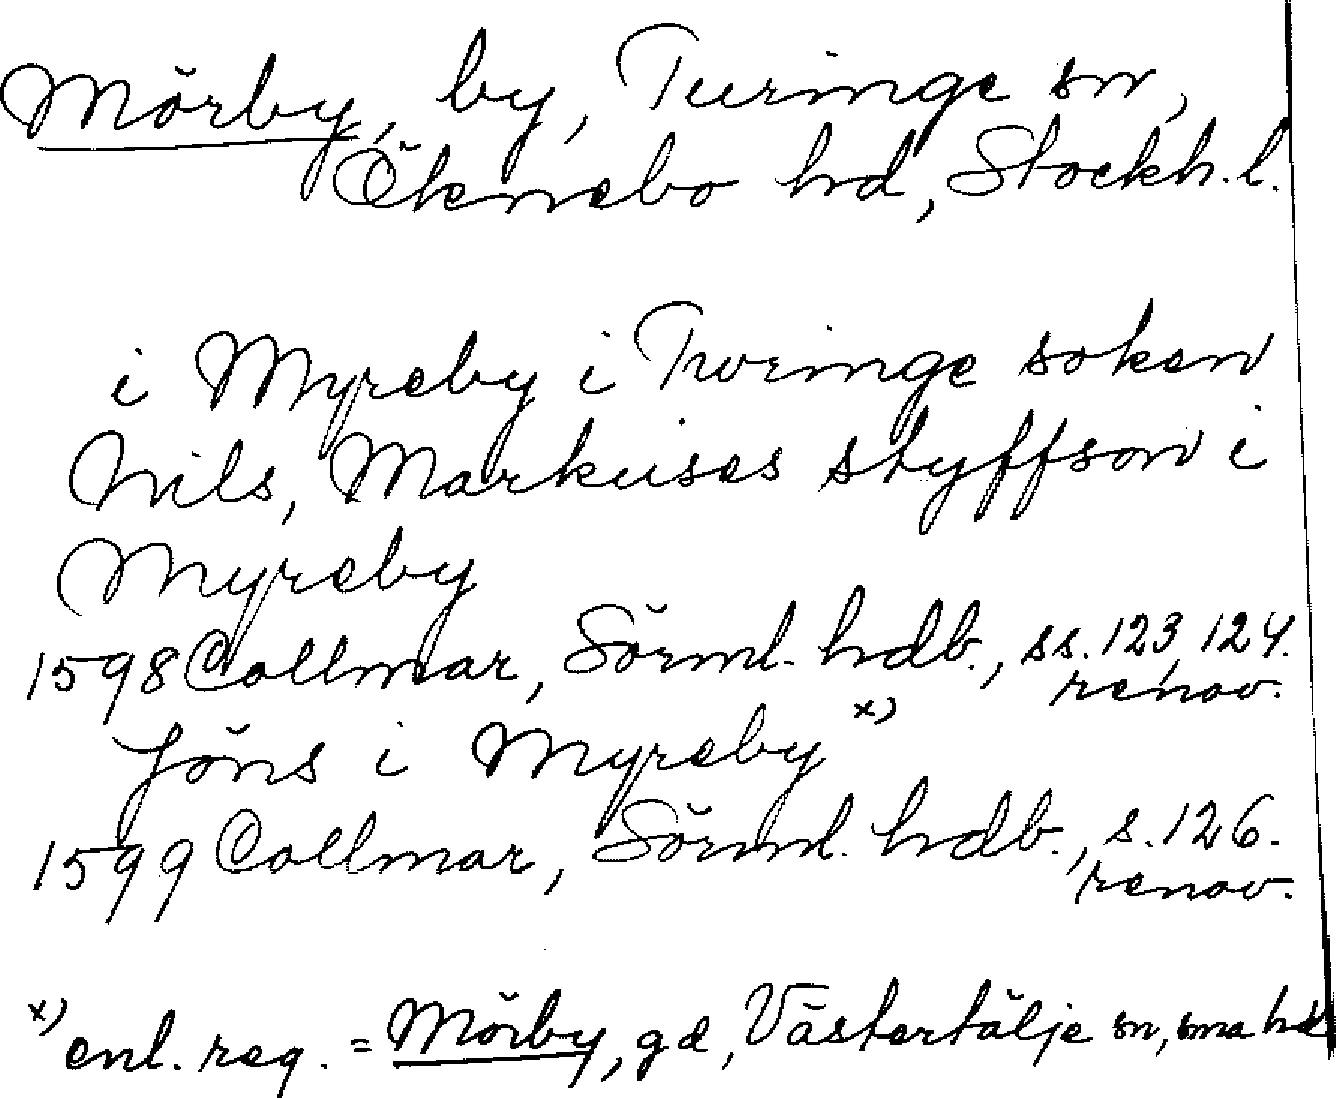 Mörby, by, Turinge sn,
Öknebo hd, Stockh. l.
i Myreby i Tworinge soken
Nils, Markuses styffson i
Myreby
1598 Collmar, Sörml. hdb., ss. 123, 124.
renov.
Jöns i Myreby x)
1599 Collmar, Sörml. hdb., s. 126.
renov.
x) enl. reg. = Mörby, gd, Västertälje sn, sma hd